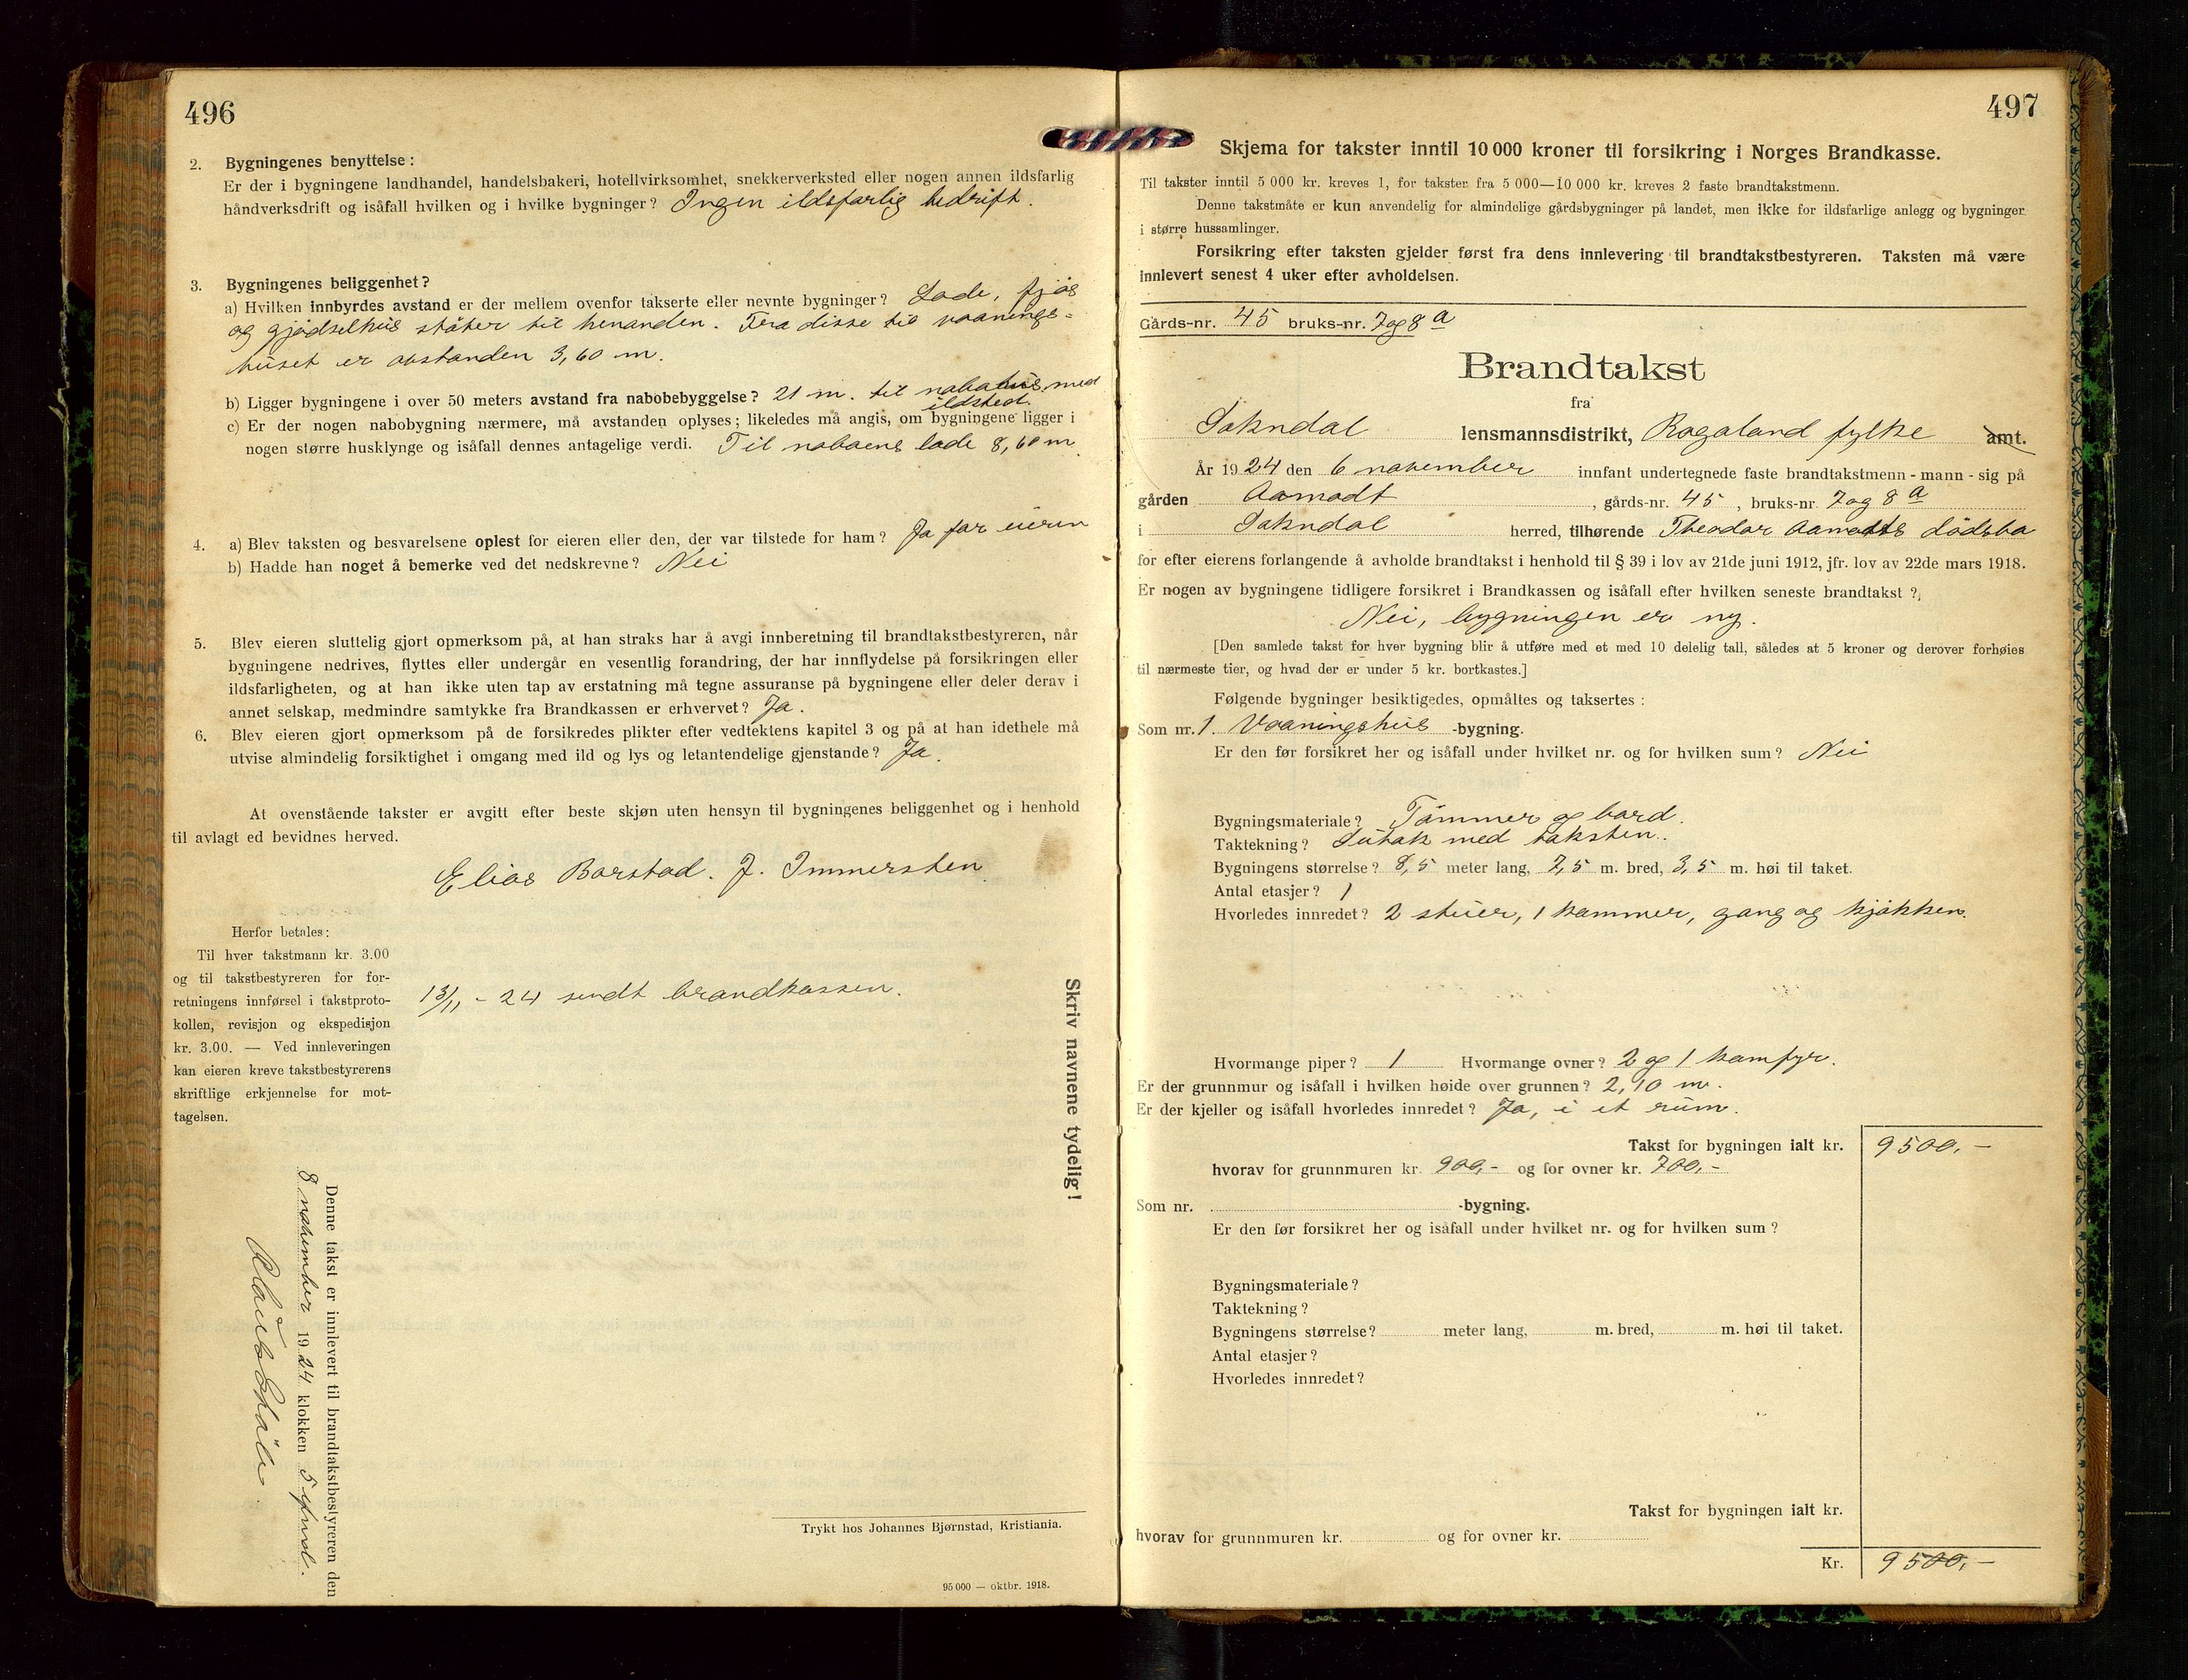 496
2. Bygningenes benyttelse:
Er der i bygningene landhandel, handelsbakeri, hotellvirksomhet, snekkerverksted eller nogen annen ildsfarlig
håndverksdrift og isåfall hvilken og i hvilke bygninger? Ingen ildsfarlig bedrift.
3. Bygningenes beliggenhet?
a) Hvilken innbyrdes avstand er der mellem ovenfor takserte eller nevnte bygninger? Lade, fjøs
og gjødselhus støter til henanden. Fra disse til vaanings-
huset er avstanden 3,60 m.
b) Ligger bygningene i over 50 meters avstand fra nabobebyggelse? 21 m. til nabohus med
ildsted.
c) Er der nogen nabobygning nærmere, må avstanden oplyses; likeledes må angis, om bygningene ligger i
nogen større husklynge og isåfall dennes antagelige verdi. Til naboens lade 8,60 m.
4. a) Blev taksten og besvarelsene oplest for eieren eller den, der var tilstede for ham? Ja for eieren
b) Hadde han noget å bemerke ved det nedskrevne? Nei
5. Blev eieren sluttelig gjort opmerksom på, at han straks har å avgi innberetning til brandtakstbestyreren, når
bygningene nedrives, flyttes eller undergår en vesentlig forandring, der har innflydelse på forsikringen eller
ildsfarligheten, og at han ikke uten tap av erstatning må tegne assuranse på bygningene eller deler derav i
annet selskap, medmindre samtykke fra Brandkassen er erhvervet? Ja.
6. Blev eieren gjort opmerksom på de forsikredes plikter efter vedtektens kapitel 3 og på at han idethele må
utvise almindelig forsiktighet i omgang med ild og lys og letantendelige gjenstande? Ja.
At ovenstående takster er avgitt efter beste skjøn uten hensyn til bygningenes beliggenhet og i henhold
til avlagt ed bevidnes herved.
Elias Barstad. J. Immerstein
Herfor betales:
Til hver takstmann kr. 3.00
og til takstbestyreren for for-
retningens innførsel i takstproto-
kollen, revisjon og ekspedisjon
kr. 3.00. — Ved innleveringen
kan eieren kreve takstbestyrerens
skriftlige erkjennelse for mot-
tagelsen.
13/11 - 24 sendt brandkassen.
Skriv navnene tydelig!
Denne takst er innlevert til brandtakstbestyreren den
8 november 1924 klokken 5
Trykt hos Johannes Bjørnstad, Kristiania.
95 000 — oktbr. 1918.
497
Skjema for takster inntil 10 000 kroner til forsikring i Norges Brandkasse.
Til takster inntil 5 000 kr. kreves 1, for takster fra 5 000—10 000 kr. kreves 2 faste brandtakstmenn.
Denne takstmåte er kun anvendelig for almindelige gårdsbygninger på landet, men ikke for ildsfarlige anlegg og bygninger
i større hussamlinger.
Forsikring efter taksten gjelder først fra dens innlevering til brandtakstbestyreren. Taksten må være
innlevert senest 4 uker efter avholdelsen.
Gårds-nr. 45 bruks-nr. 7 og 8 a
Brandtakst
fra
Sokndal lensmannsdistrikt, Rogaland fylke amt.
År 1924 den 6 november innfant undertegnede faste brandtakstmenn - mann - sig på
gården Aamodt, gårds-nr. 45, bruks-nr. 7 og 8 a
i Sokndal herred, tilhørende Theodor Aamodts dødsbo
for efter eierens forlangende å avholde brandtakst i henhold til § 39 i lov av 21de juni 1912, jfr. lov av 22de mars 1918.
Er nogen av bygningene tidligere forsikret i Brandkassen og isåfall efter hvilken seneste brandtakst?
Nei, bygningen er ny.
[Den samlede takst for hver bygning blir å utføre med et med 10 delelig tall, således at 5 kroner og derover forhøies
til nærmeste tier, og hvad der er under 5 kr. bortkastes.]
Følgende bygninger besiktigedes, opmåltes og taksertes:
Som nr. 1. Vaaningshus -bygning.
Er den før forsikret her og isåfall under hvilket nr. og for hvilken sum? Nei
Bygningsmateriale? Tømmer og bord.
Taktekning? Sutak med taksten.
Bygningens størrelse? 8,5 meter lang, 7,5 m. bred, 3,5 m. høi til taket.
Antal etasjer? 1
Hvorledes innredet? 2 stuer, 1 kammer, gang og kjøkken.
Hvormange piper? 1 Hvormange ovner? 2 og 1 komfyr.
Er der grunnmur og isåfall i hvilken høide over grunnen? 2,10 m.
Er der kjeller og isåfall hvorledes innredet? Ja, i et rum.
Takst for bygningen ialt kr. 9500,-
hvorav for grunnmuren kr. 900,- og for ovner kr. 700,-
Som nr. -bygning.
Er den før forsikret her og isåfall under hvilket nr. og for hvilken sum?
Bygningsmateriale?
Taktekning?
Bygningens størrelse? meter lang, m. bred, m. høi til taket.
Antal etasjer?
Hvorledes innredet?
Takst for bygningen ialt kr.
hvorav for grunnmuren kr. og for ovner kr.
Kr. 9500,-